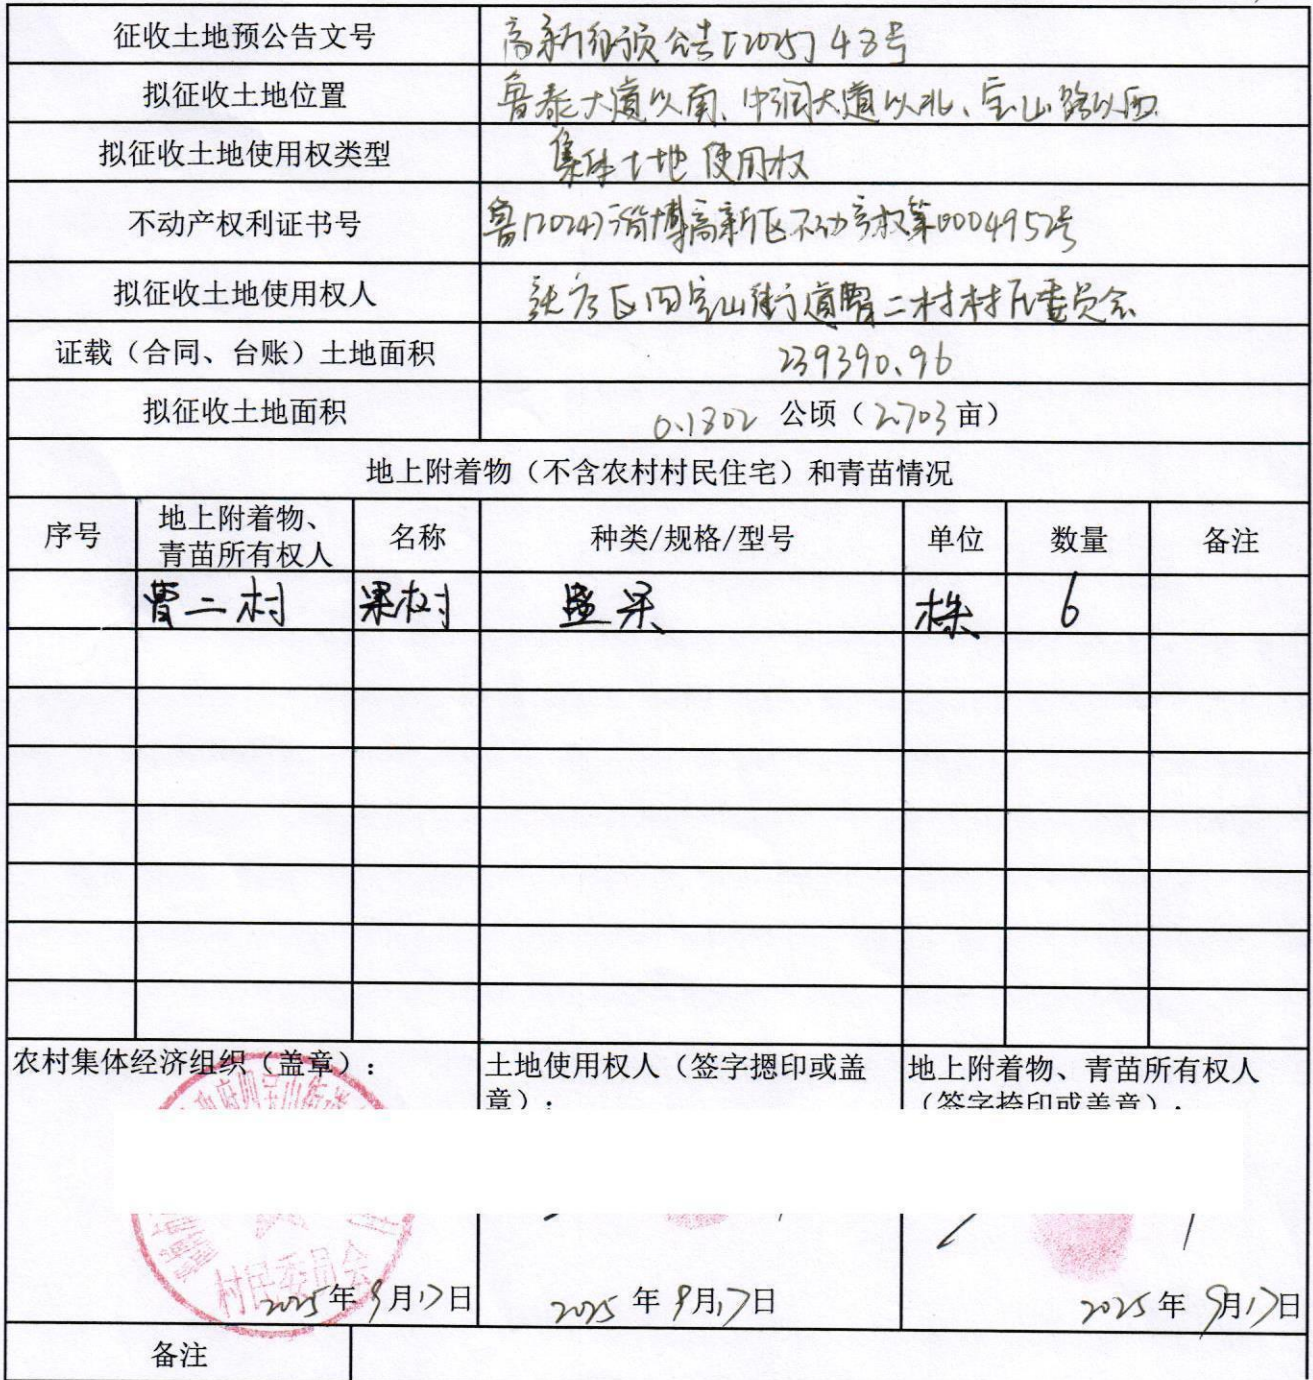 征收土地预公告文号 高新征预公告[2025]48号
拟征收土地位置 鲁泰大道以南、中润大道以北、宝山路以西
拟征收土地使用权类型 集体土地使用权
不动产权利证书号 鲁(2024)淄博高新区不动产权第0004952号
拟征收土地使用权人 张店区四宝山街道曹二村村民委员会
证载（合同、台账）土地面积 239390.96
拟征收土地面积 0.1802 公顷（2.703亩）
地上附着物（不含农村村民住宅）和青苗情况
序号 地上附着物、青苗所有权人 名称 种类/规格/型号 单位 数量 备注
曹二村 果树 盛果 株 6
农村集体经济组织（盖章）：
土地使用权人（签字摁印或盖
章）：
地上附着物、青苗所有权人
（签字捺印或盖章）：
府四宝山街道
村民委员会
2025年9月17日
2025年9月17日
2025年9月17日
备注